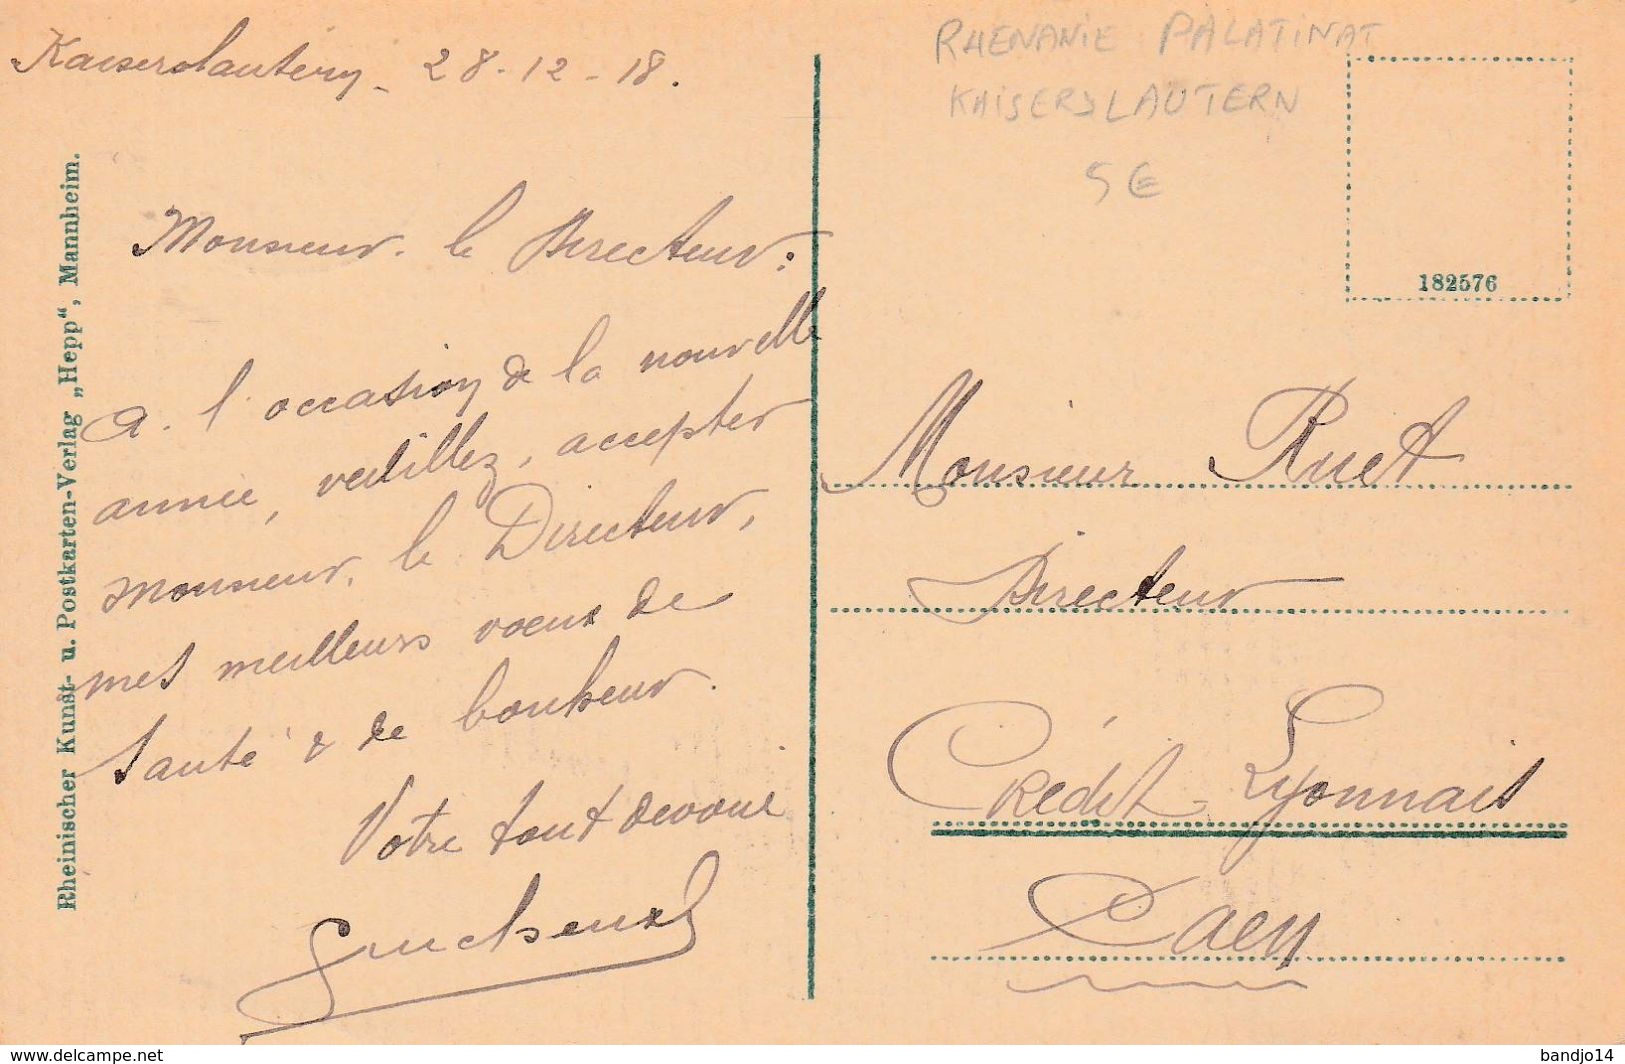 Kaiserslautern - 28-12-18.
Monsieur le Directeur:
A l'occasion de la nouvelle
année, veuillez, accepter
Monsieur, le Directeur,
mes meilleurs voeux de
Santé & de bonheur.
Votre tout dévoué
RHENANIE PALATINAT
KAISERSLAUTERN
5€
182576
Monsieur Ruet
Directeur
Crédit Lyonnais
Caen
Rheinischer Kunst- u. Postkarten-Verlag „Hepp“, Mannheim.
www.delcampe.net
bandjo14